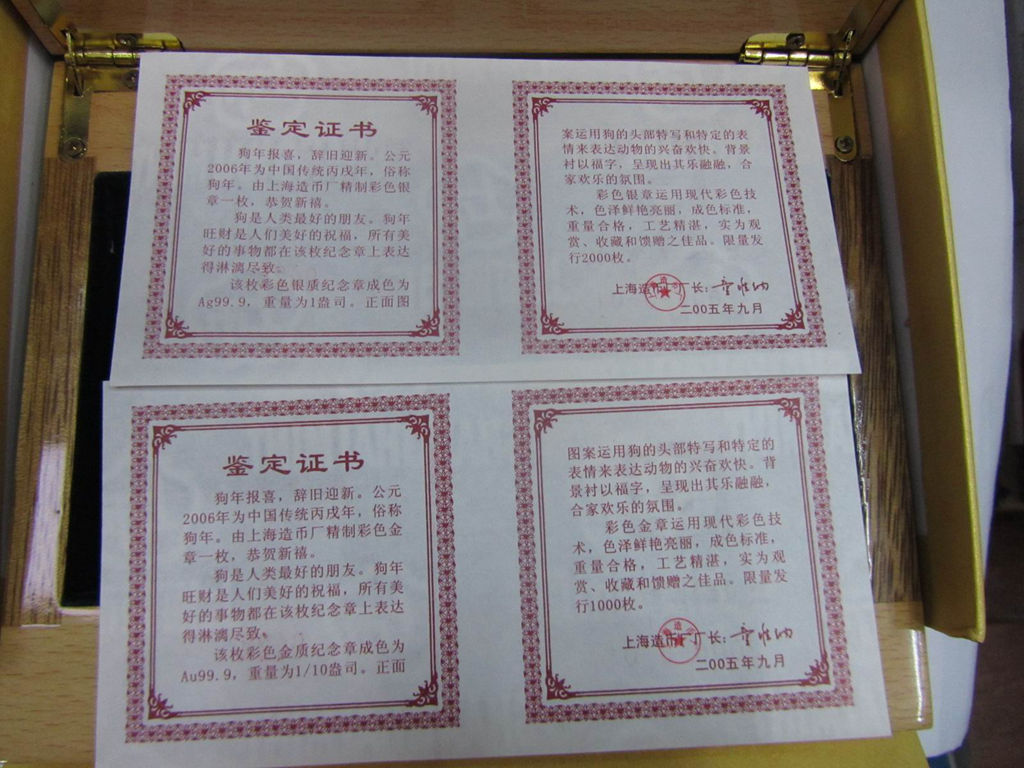 鉴定证书
狗年报喜，辞旧迎新。公元
2006年为中国传统丙戌年，俗称
狗年。由上海造币厂精制彩色银
章一枚，恭贺新禧。
狗是人类最好的朋友。狗年
旺财是人们美好的祝福，所有美
好的事物都在该枚纪念章上表达
得淋漓尽致。
该枚彩色银质纪念章成色为
Ag99.9，重量为1盎司。正面图
案运用狗的头部特写和特定的表
情来表达动物的兴奋欢快。背景
衬以福字，呈现出其乐融融，合
家欢乐的氛围。
彩色银章运用现代彩色技
术，色泽鲜艳亮丽，成色标准，
重量合格，工艺精湛，实为观
赏、收藏和馈赠之佳品。限量发
行2000枚。
上海造币厂厂长：
二00五年九月
鉴定证书
狗年报喜，辞旧迎新。公元
2006年为中国传统丙戌年，俗称
狗年。由上海造币厂精制彩色金
章一枚，恭贺新禧。
狗是人类最好的朋友。狗年
旺财是人们美好的祝福，所有美
好的事物都在该枚纪念章上表达
得淋漓尽致。
该枚彩色金质纪念章成色为
Au99.9，重量为1/10盎司。正面
图案运用狗的头部特写和特定的
表情来表达动物的兴奋欢快。背
景衬以福字，呈现出其乐融融，
合家欢乐的氛围。
彩色金章运用现代彩色技
术，色泽鲜艳亮丽，成色标准，
重量合格，工艺精湛，实为观
赏、收藏和馈赠之佳品。限量发
行1000枚。
上海造币厂厂长：
二00五年九月